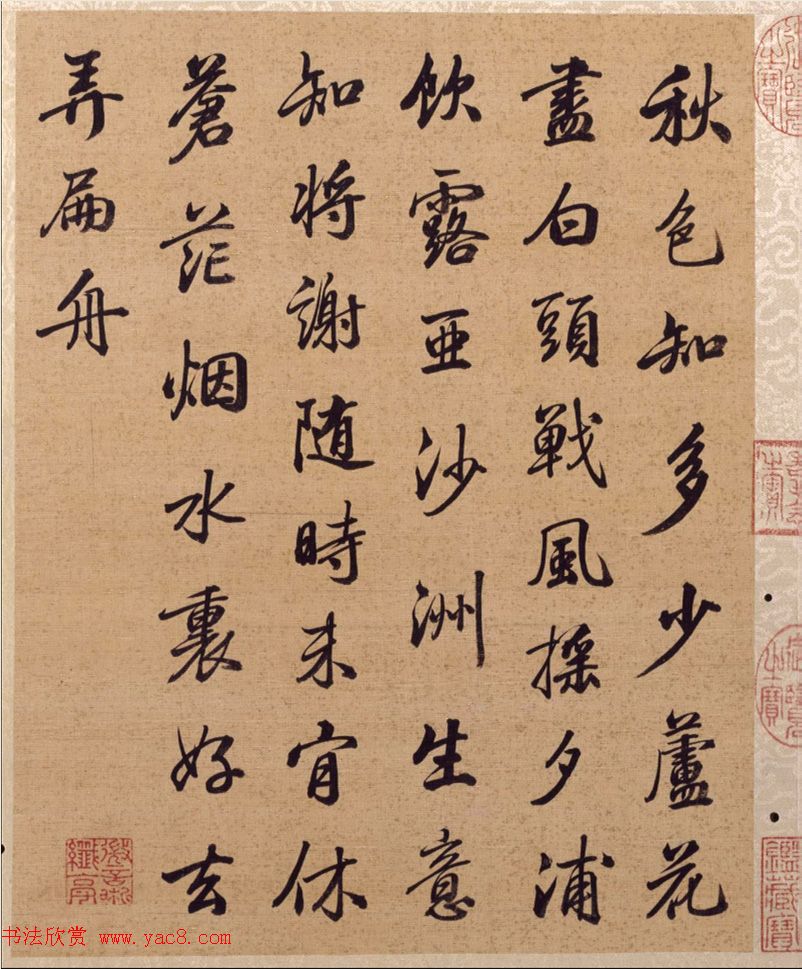 秋色知多少蘆花
盡白頭戰風搖夕浦
飲露亞沙洲生意
知将謝随時未肯休
蒼茫烟水裏好去
弄扁舟
之寶
之寶
鑑藏寶
书法欣赏 www.yac8.com